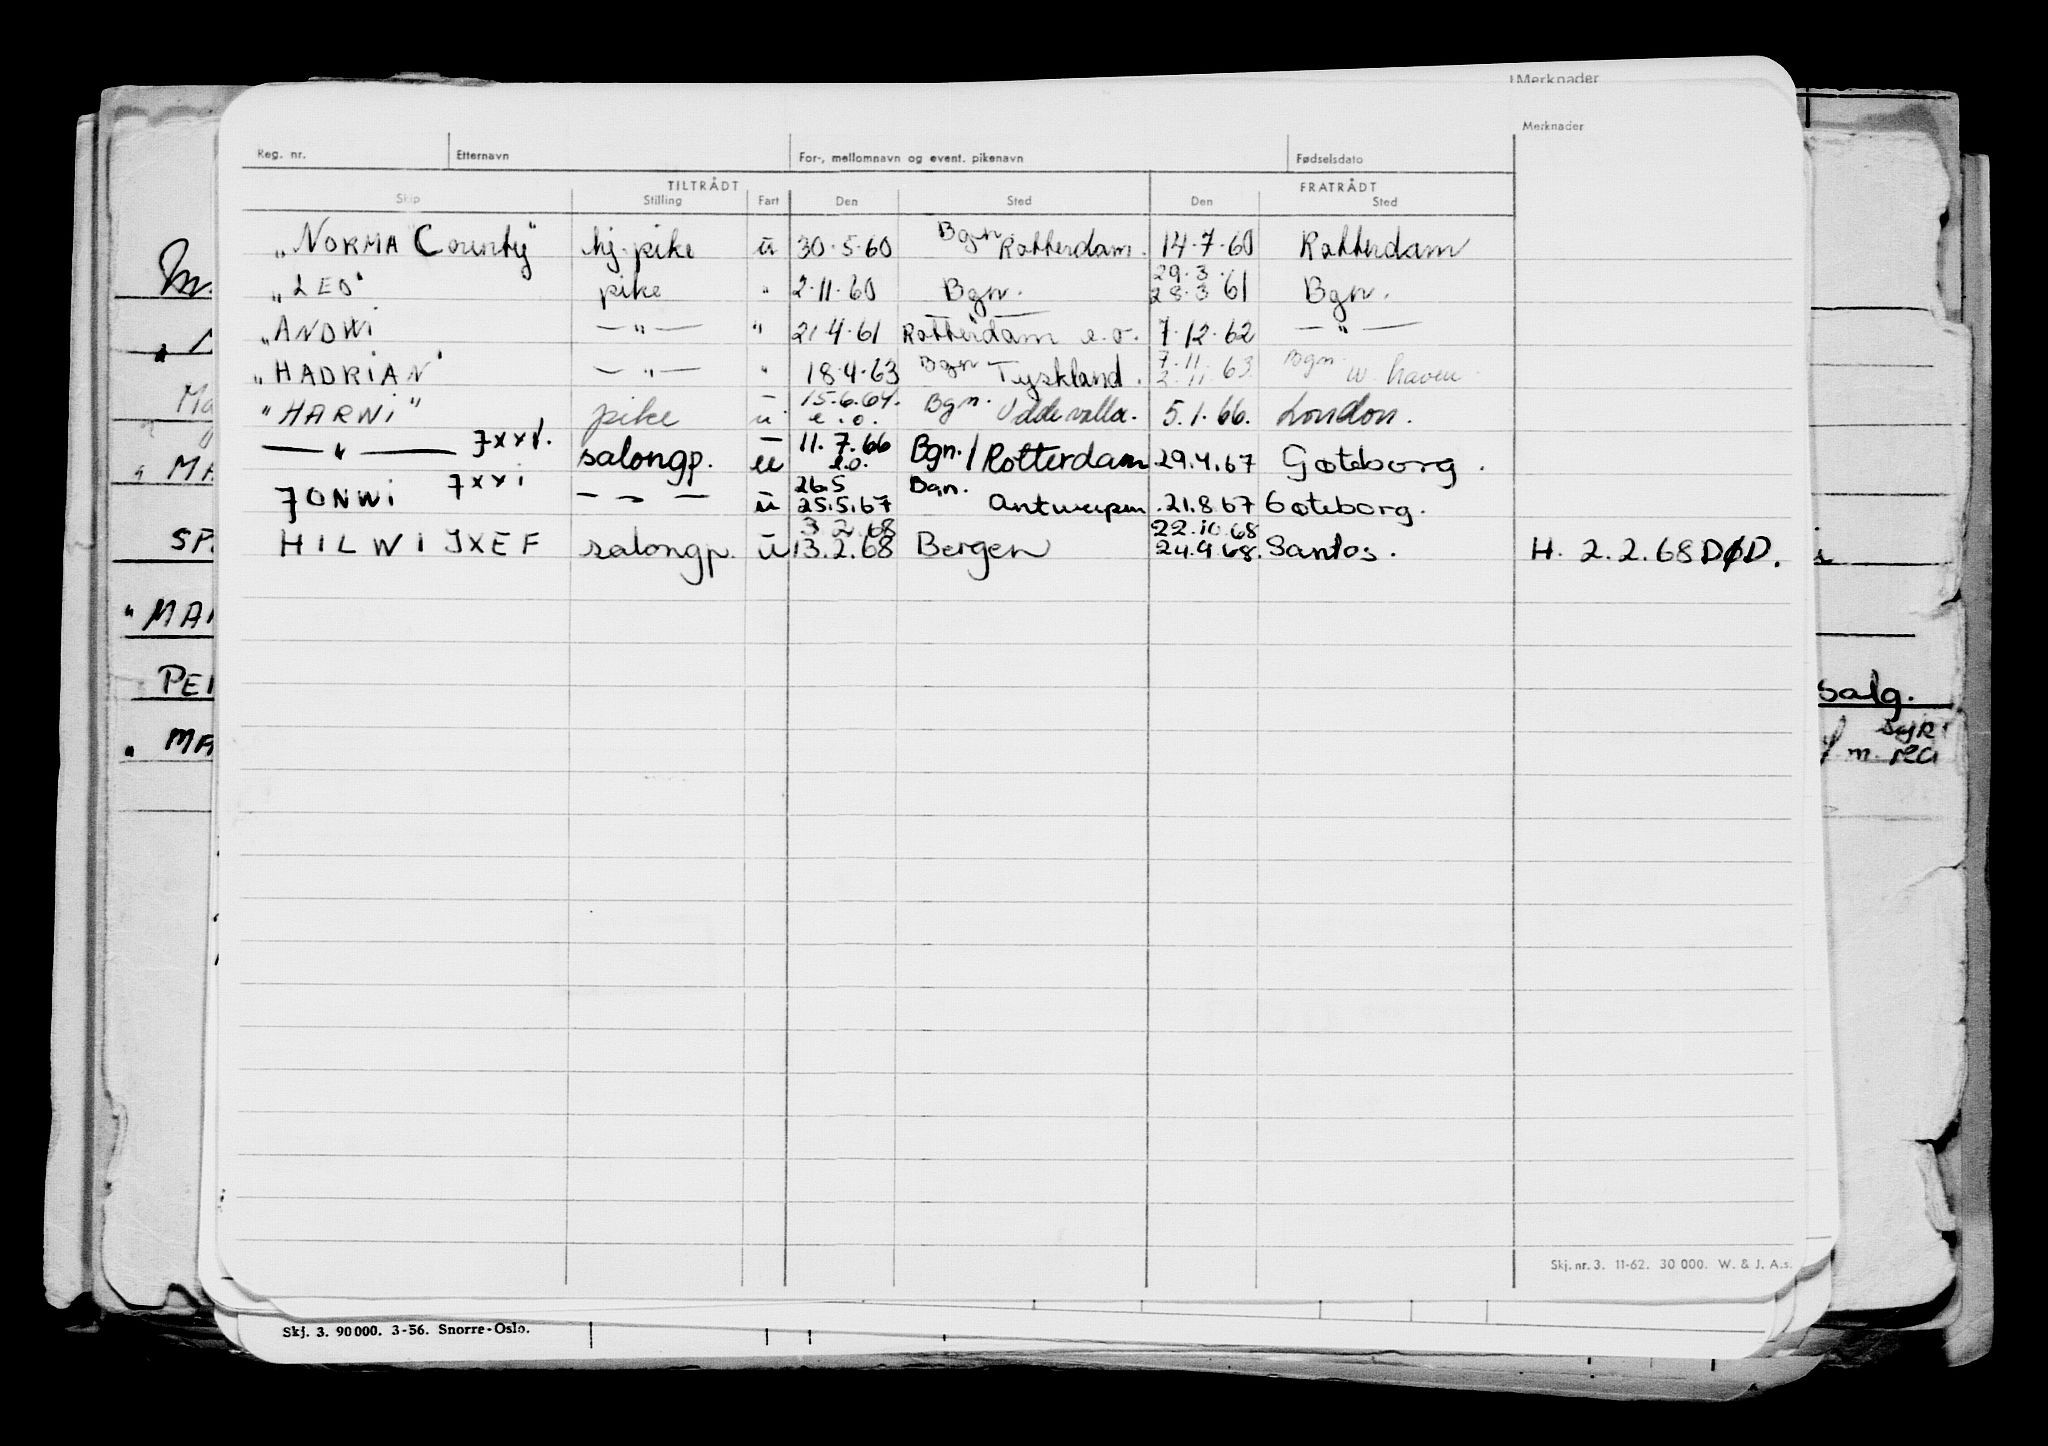 Merknader
Merknader
Reg. nr. Etternavn For-, mellomnavn og event. pikenavn Fødselsdato
TILTRÅDT FRATRÅDT
Skip Stilling Fart Den Sted Den Sted
„NORMA County" hj. pike u 30.5.60 Bgn. Rotterdam. 14.7.60 Rotterdam
„LEO" pike " 2.11.60 Bgn. 29.3. 28.3 61 Bgn.
„ANDWI — " — " 21.4.61 Rotterdam e.o. 7.12.62 — " —
„HADRIAN" — " — " 18.4.63 Bgn Tyskland. 7.11. 2.11.63 Bgn. W. haven.
"HARWI" pike u 15.6.64. e.o. Bgn. Uddevalla. 5.1.66. London.
— " — JXXV. salongp. u 11.7.66 e.o. Bgn. / Rotterdam 29.4.67 Gøteborg.
JONWI JXXI — " — u 26.5 25.5.67 Bgn. Antwerpen. 21.8.67 Gøteborg.
HILWI JXEF salongp. u 3.2.68 13.2.68 Bergen 22.10.68 24.9.68. Santos. H. 2.2.68 DØD.
M.
Ma
„ MA
SP.
"MAR
PE
salg.
„ MA
m. rea
Skj. nr. 3. 11-62. 30 000. W. & J. A.s.
Skj. 3. 90000. 3-56. Snorre-Oslo.